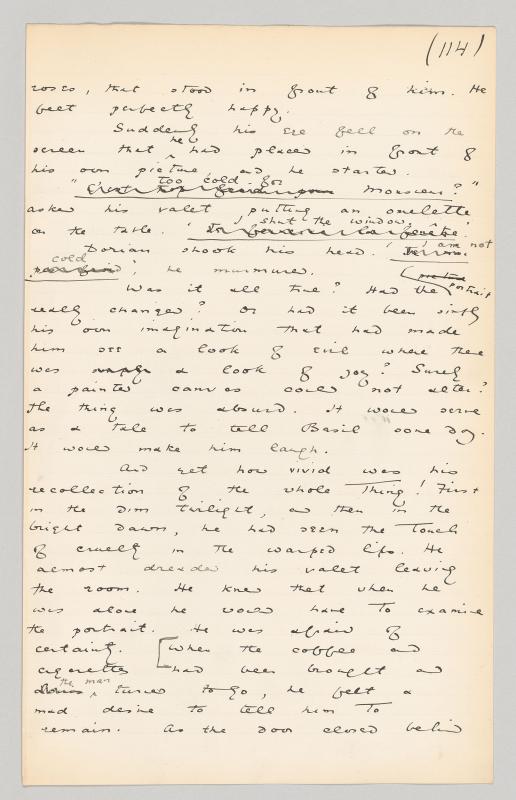 (114)
roses, that stood in front of him. He
felt perfectly happy.
Suddenly his eye fell on the
screen that he had placed in front of
his own picture and he started.
"too cold for Monsieur?"
asked his valet, putting an omelette
on the table. 'I shut the window?'
Dorian shook his head. 'I am not
cold', he murmured.
Was it all true? Had the portrait
really changed? Or had it been simply
his own imagination that had made
him see a look of evil where there
was a look of joy? Surely
a painted canvas could not alter?
The thing was absurd. It would serve
as a tale to tell Basil some day.
It would make him laugh.
And yet how vivid was his
recollection of the whole Thing! First
in the dim twilight, and then in the
bright dawn, he had seen the Touch
of cruelty in the warped lips. He
almost dreaded his valet leaving
the room. He knew that when he
was alone he would have To examine
the portrait. He was afraid of
certainty. [When the coffee and
cigarettes had been brought and
the man turned to go, he felt a
mad desire to tell him To
remain. As the door closed behind